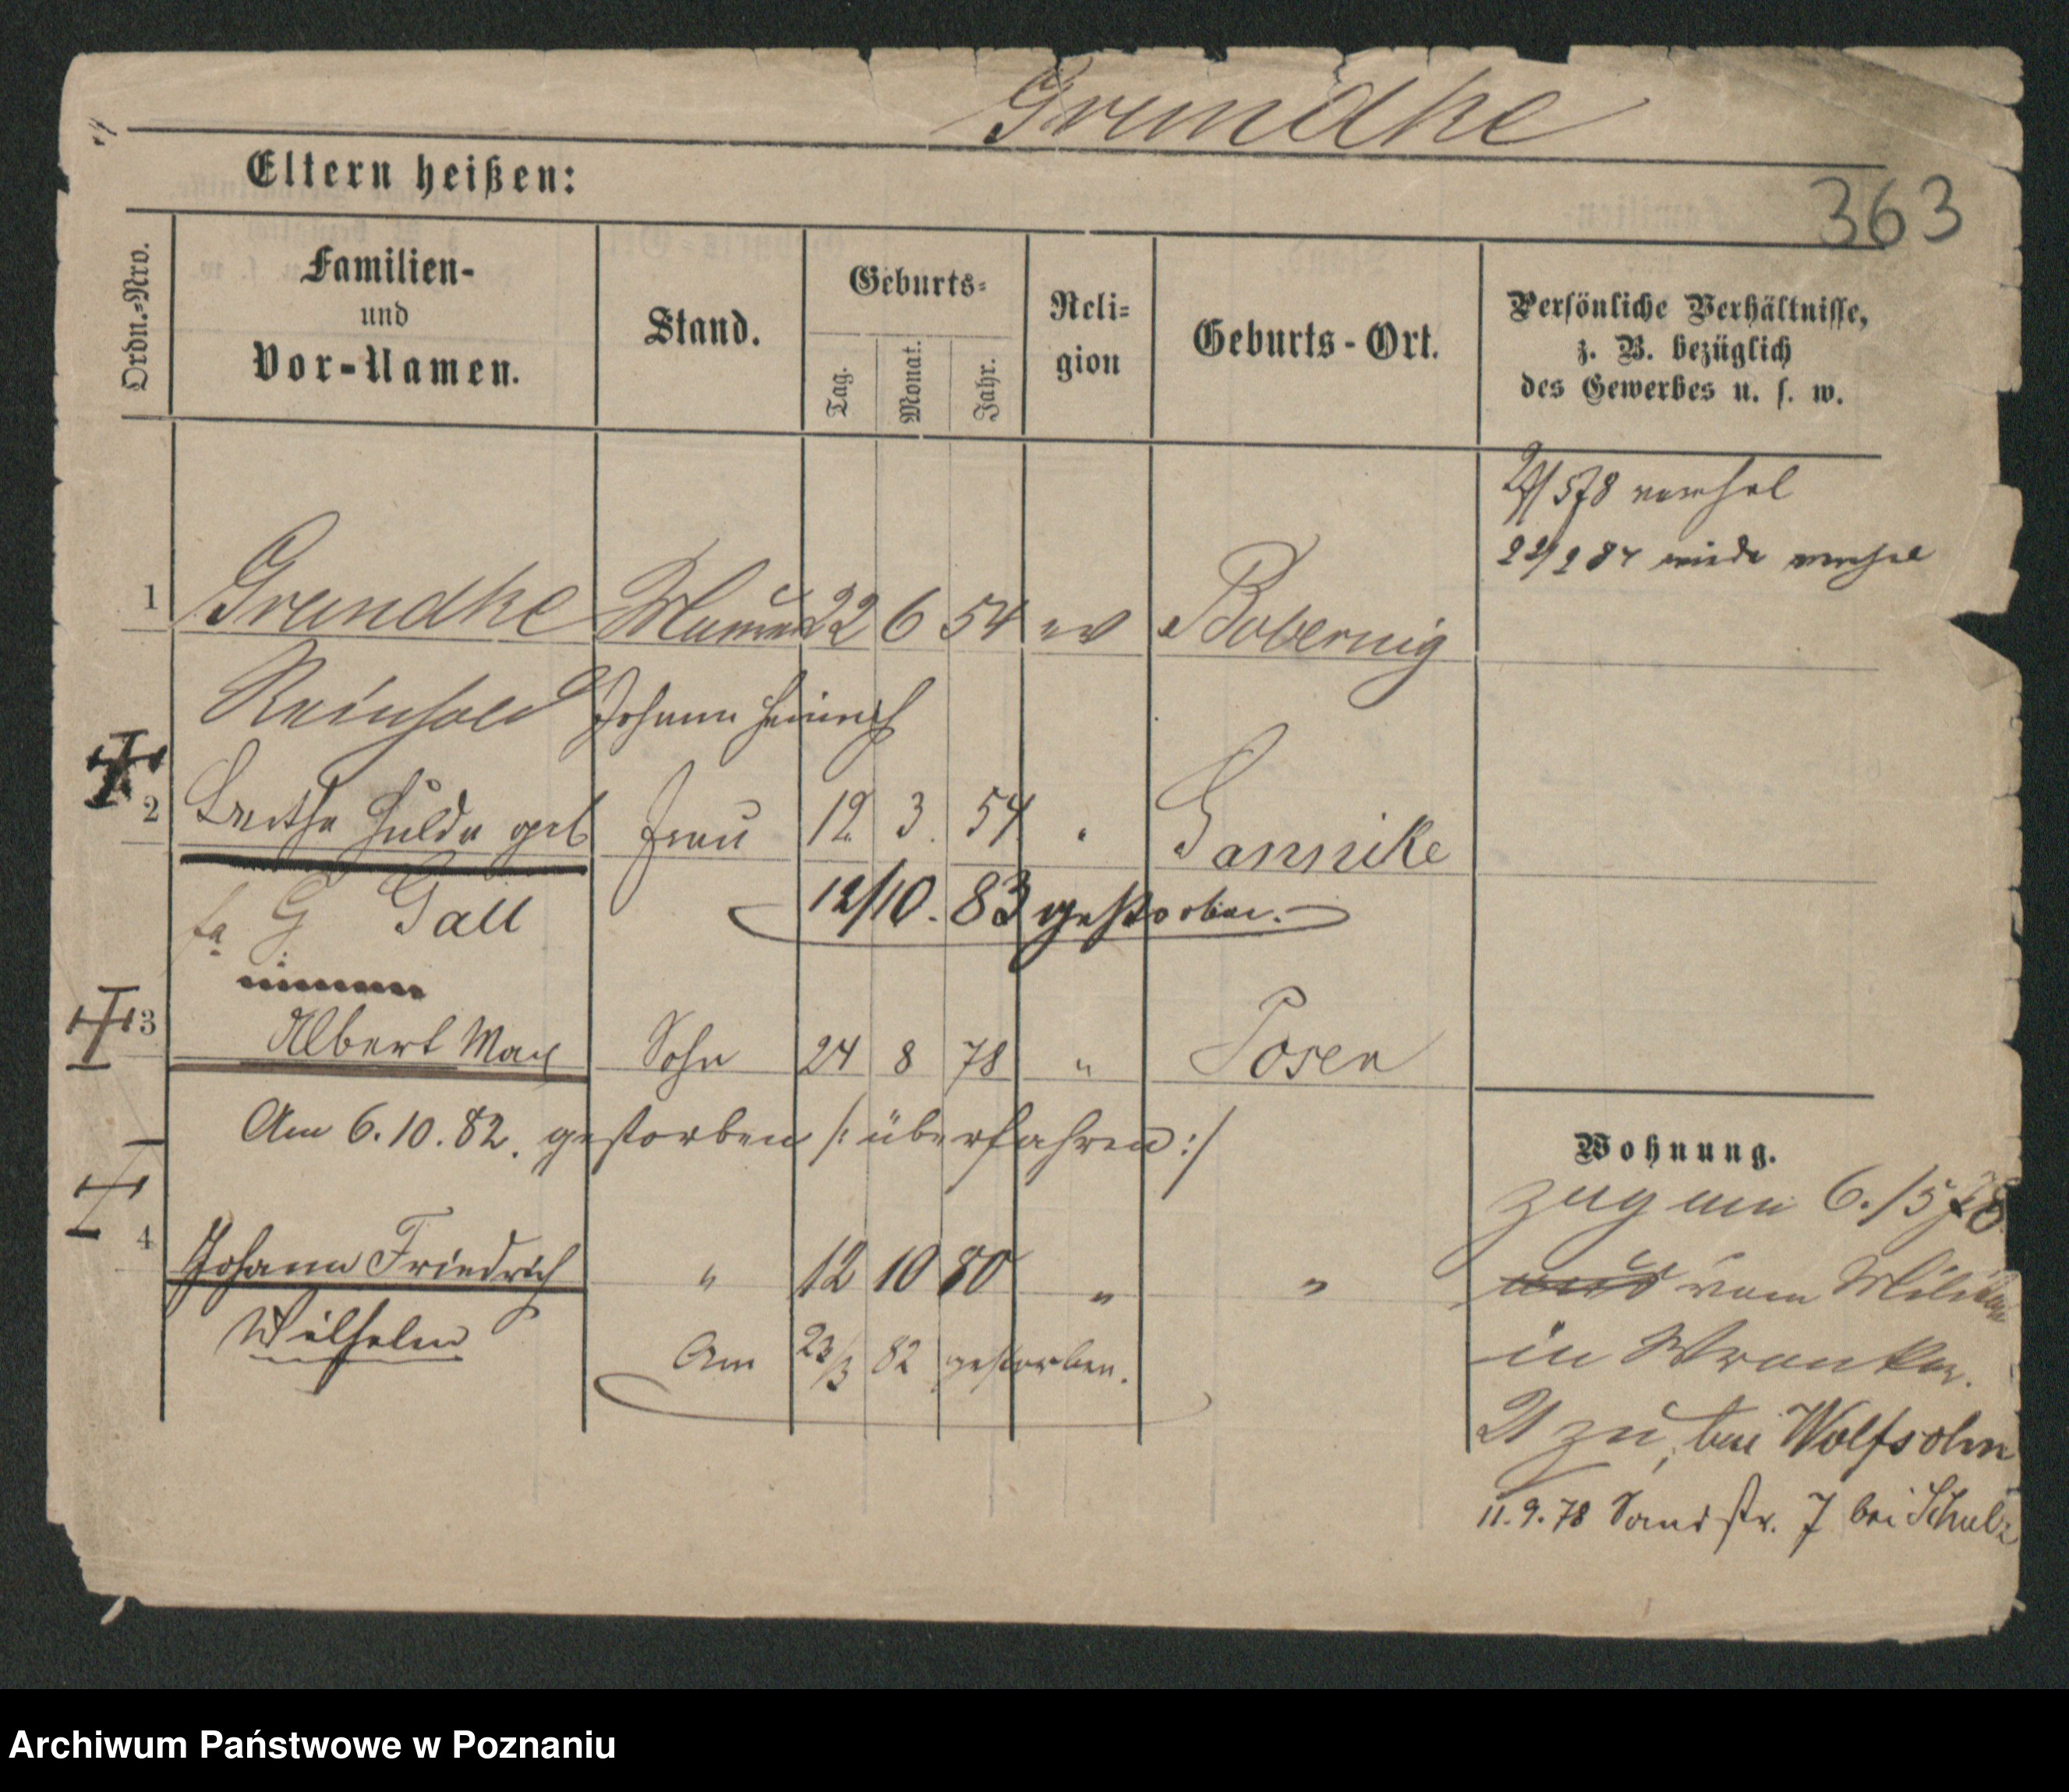 Grundke
Eltern heißen:
363
Ordn.=Nro.
Familien-
und
Vor-Namen.
Stand.
Geburts=
Tag.
Monat.
Jahr.
Reli=
gion
Geburts-Ort.
Persönliche Verhältnisse,
z. B. bezüglich
des Gewerbes u. s. w.
1 Grundke Maurer 22 6 54 ev Bobernig
Reinhold Johann Heinrich
2 Bertha Hulda geb Frau 12 3. 54 " Gannike
G Gall 12/10. 83 gestorben.
3 Albert Max Sohn 24 8 78 " Posen
Am 6.10.82. gestorben /: überfahren :/
4 Johann Friedrich " 12 10 80 " "
Wilhelm
Am 23/3 82 gestorben.
Wohnung.
zug am 6./5 78
vom Militär
in Wronker.
21 zu, bei Wolfsohn
11.9.78 Sandstr. 7 bei Schulz
Archiwum Państwowe w Poznaniu